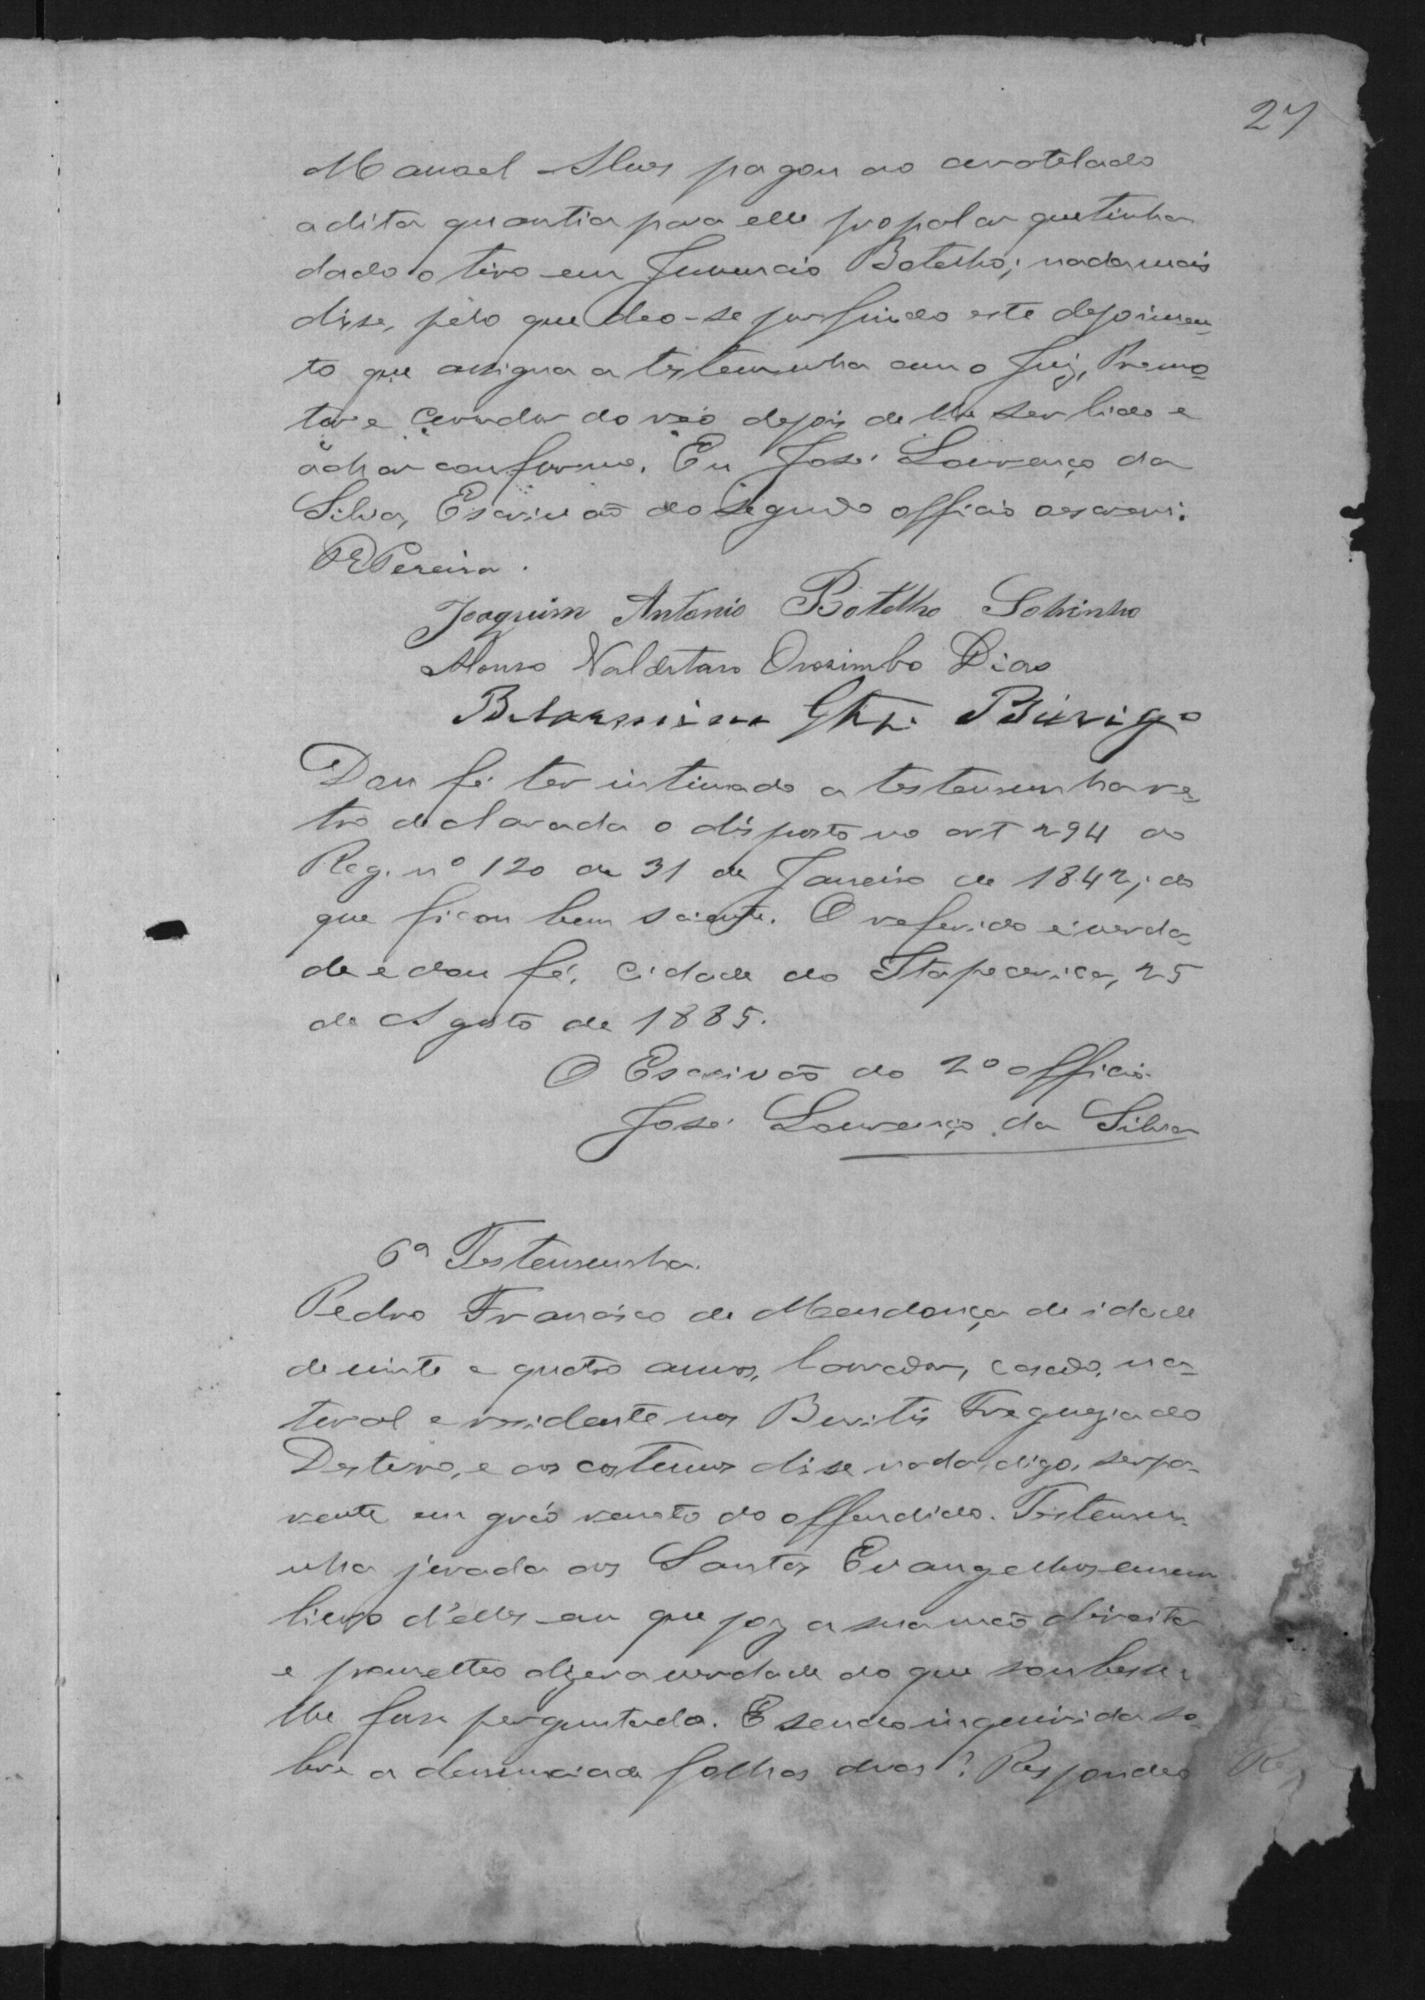 27
Manoel Alves pagou ao curatelado
a dita quantia para elle propalar que tinha
dado o tiro em Juvencio Botelho; nada mais
disse, pelo que deo-se por findo este depoimen-
to que assigna a testemunha com o Juiz, Promo-
tor e Curador do réo depois de lhe ser lido e
achar conforme. Eu José Lourenço da
Silva, Escrivão do segundo officio o escrevi.
Pereira.
Joaquim Antonio Botelho Sobrinho
Orozimbo Dias
Dou fé ter intimado a testemunha re-
tro declarada o disposto no art 294 do
Reg. nº 120 de 31 de Janeiro de 1842, do
que ficou bem sciente. O referido é verda-
de e dou fé. Cidade do Itapecerica, 25
de Agosto de 1885.
O Escrivão do 2º officio
José Lourenço da Silva
6ª Testemunha.
Pedro Francisco de Mendonça de idade
de vinte e quatro annos, lavrador, casado, na-
tural e residente nos Buritis Freguezia do
Desterro, e aos costumes disse nada, digo, ser pa-
rente em gráo remoto do offendido. Testemu-
nha jurada aos Santos Evangelhos em um
livro d'elles em que poz a sua mão direita
e prometteo dizer a verdade do que soubesse e
lhe fosse perguntado. E sendo inquirida so-
bre a denuncia de folhas duas? Respondeo